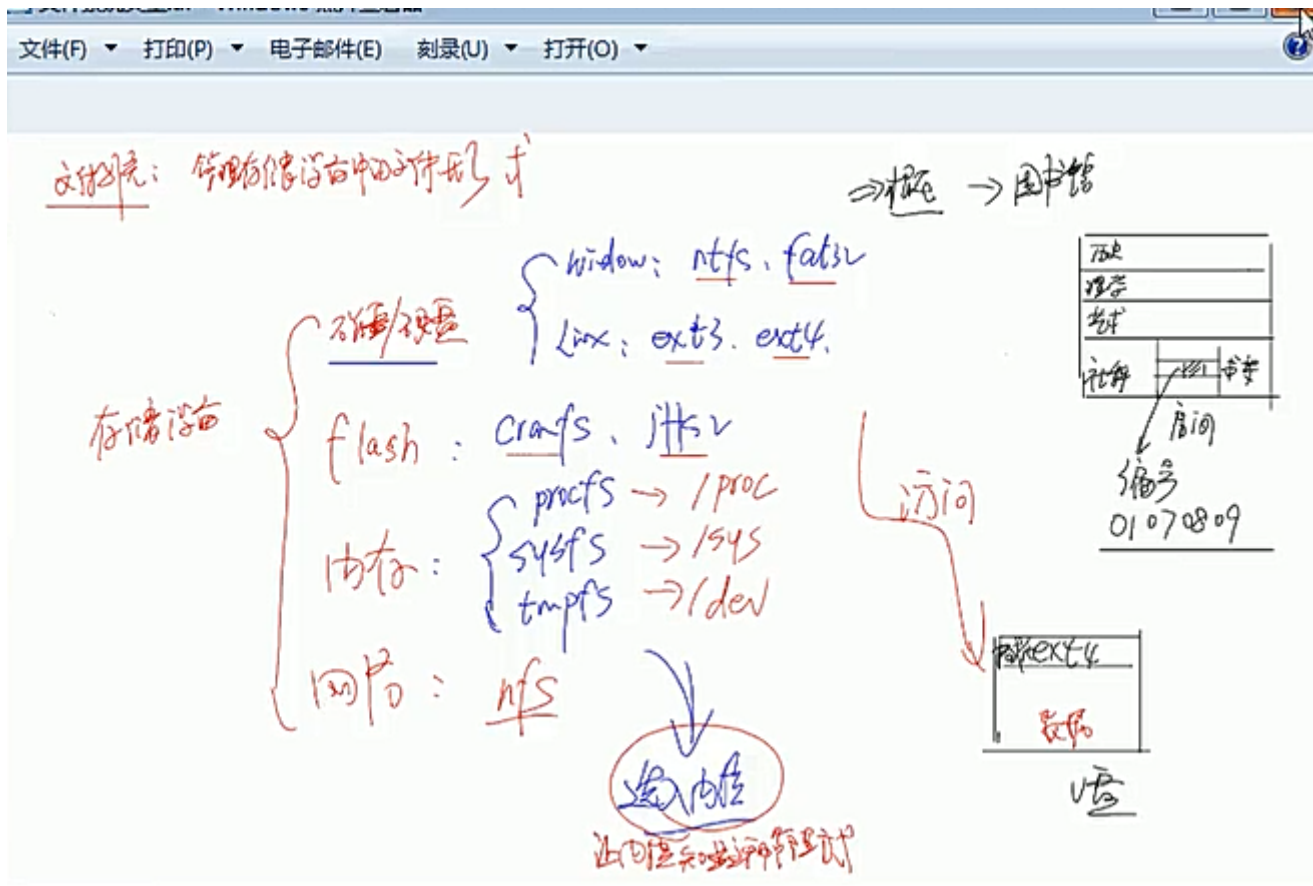 文件(F) 打印(P) 电子邮件(E) 刻录(U) 打开(O)
文件系统: 管理存储设备中的文件形式
⇒ 概念 → 图书馆
历史
理学
艺术
计算机 书架
房间
编号
01070809
存储设备
磁盘/硬盘
window: ntfs、fat32
Linx: ext3. ext4.
flash: cramfs、jffs2
内存:
procfs → /proc
sysfs → /sys
tmpfs → /dev
网络: nfs
访问
ext4
数据
U盘
进入内核
让内核知道这种管理方式